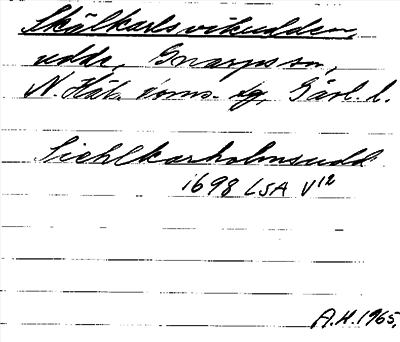 Skälkarlsvikudden,
udde, Gnarps sn,
N. Häls. doms. sg, Gävl. l.
Siehlkarholmsudd
1698 LSA V12
A.H. 1965.